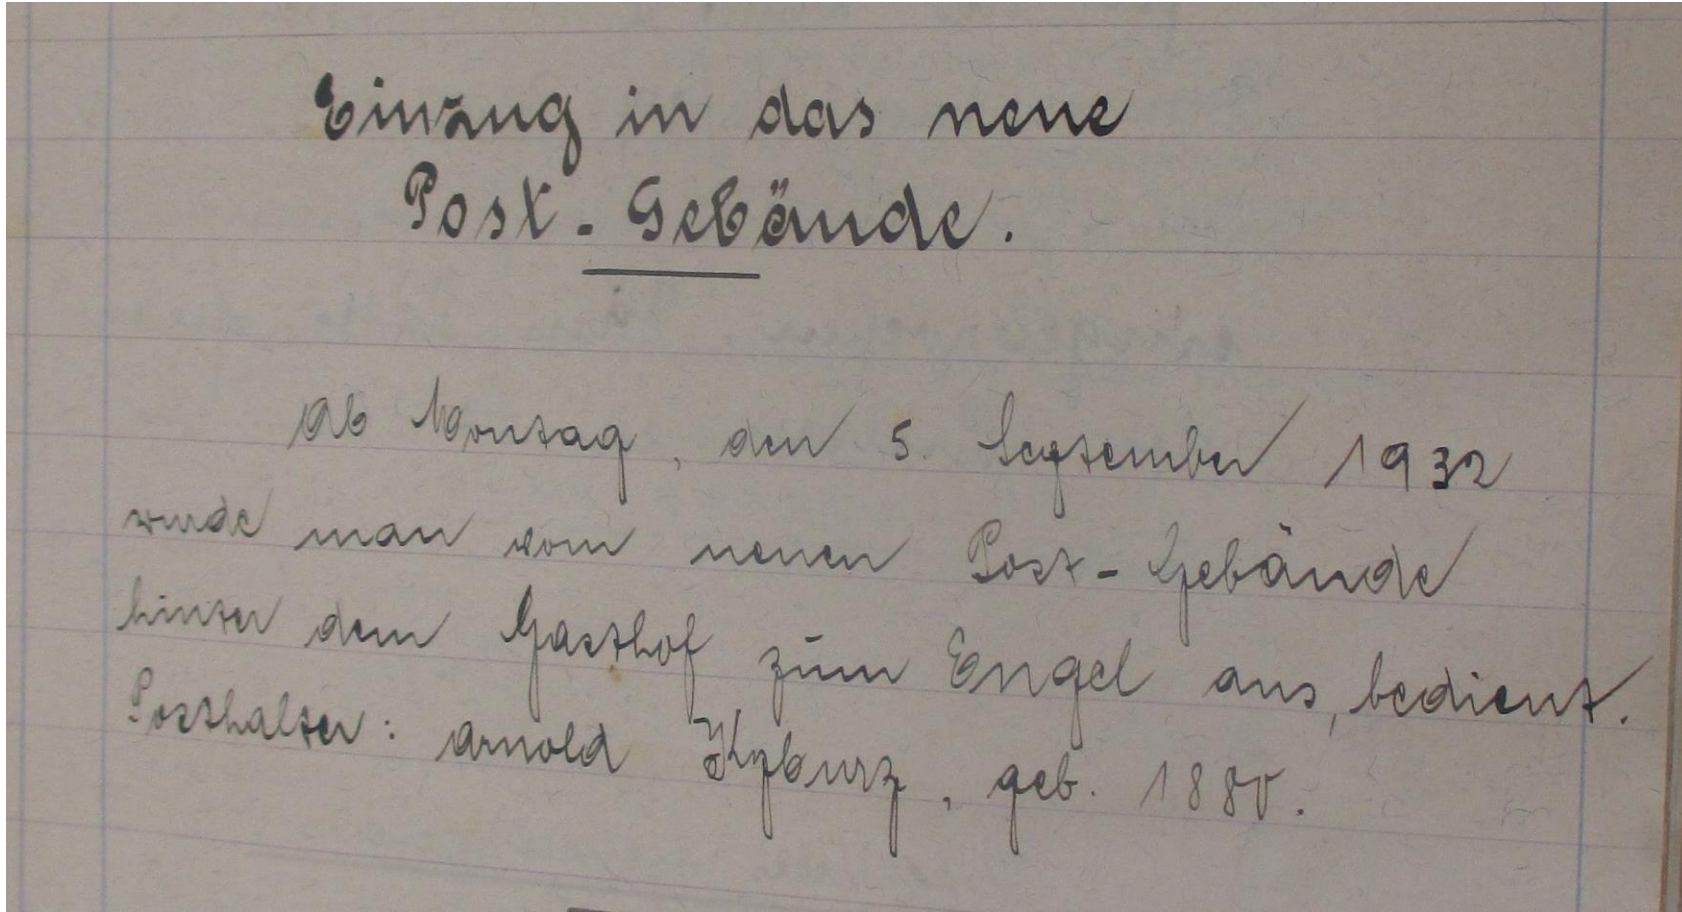 Einzug in das neue
Post-Gebäude.
Ab Montag, den 5. September 1932
wurde man vom neuen Post-Gebäude
hinter dem Gasthof zum Engel aus, bedient.
Posthalter: Arnold Kyburz, geb. 1880.